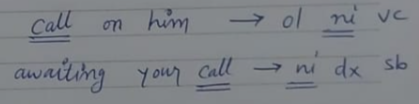 call on him → ol ni vc
awaiting your call → ni dx sb